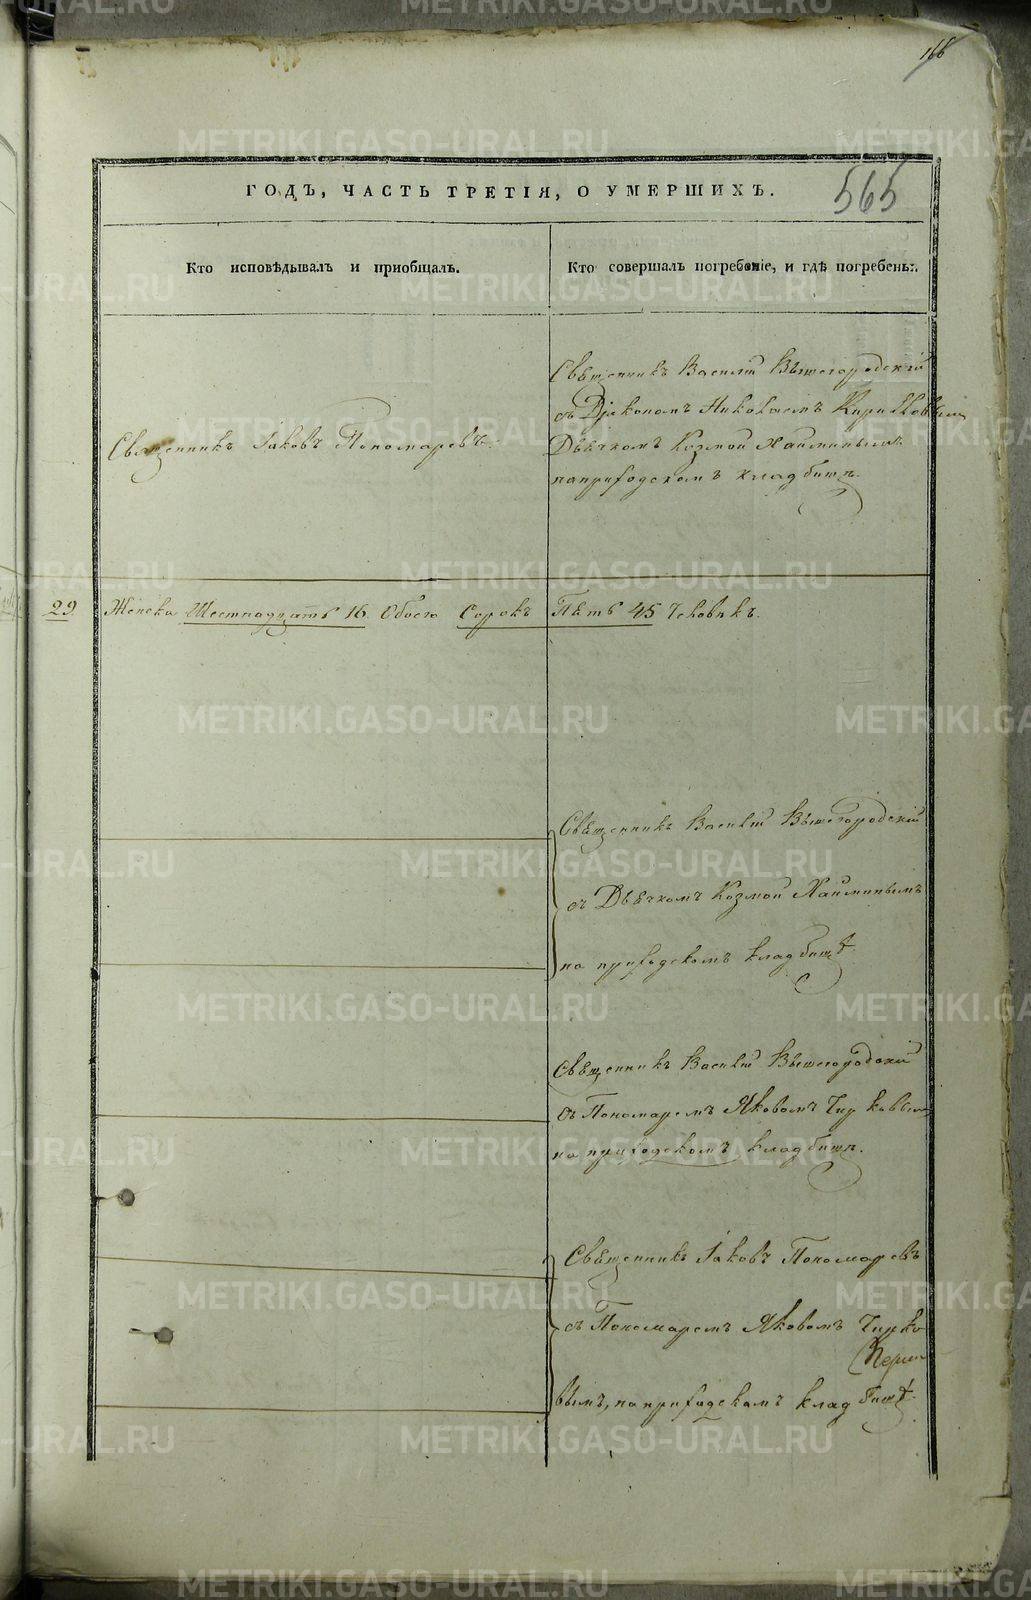 166
565
ГОДЪ, ЧАСТЬ ТРЕТІЯ, О УМЕРШИХЪ.
Кто исповѣдывалъ и пріобщалъ.
Кто совершалъ погребеніе, и гдѣ погребены.
Священникъ Іаковъ Пономаревъ
Свѣщенникъ Василій Вышегородскій
съ Діакономъ Николаемъ Кириловымъ
Дьячкомъ Козмой Хайминымъ
на приходскомъ кладбищѣ.
29 Женска Шестнадцать 16. Обоего Сорокъ Пять 45 Человѣкъ.
Свѣщенникъ Василій Вышегородскій
съ Дьячкомъ Козмой Хайминымъ
на приходскомъ кладбищѣ
Свѣщенникъ Василій Вышегородскій
съ Пономаремъ Яковомъ Чирковым
на приходскомъ кладбищѣ.
Свѣщенникъ Іаковъ Пономаревъ
съ Пономаремъ Яковомъ Чирко
вымъ, на приходскомъ кладбищѣ
METRIKI.GASO-URAL.RU